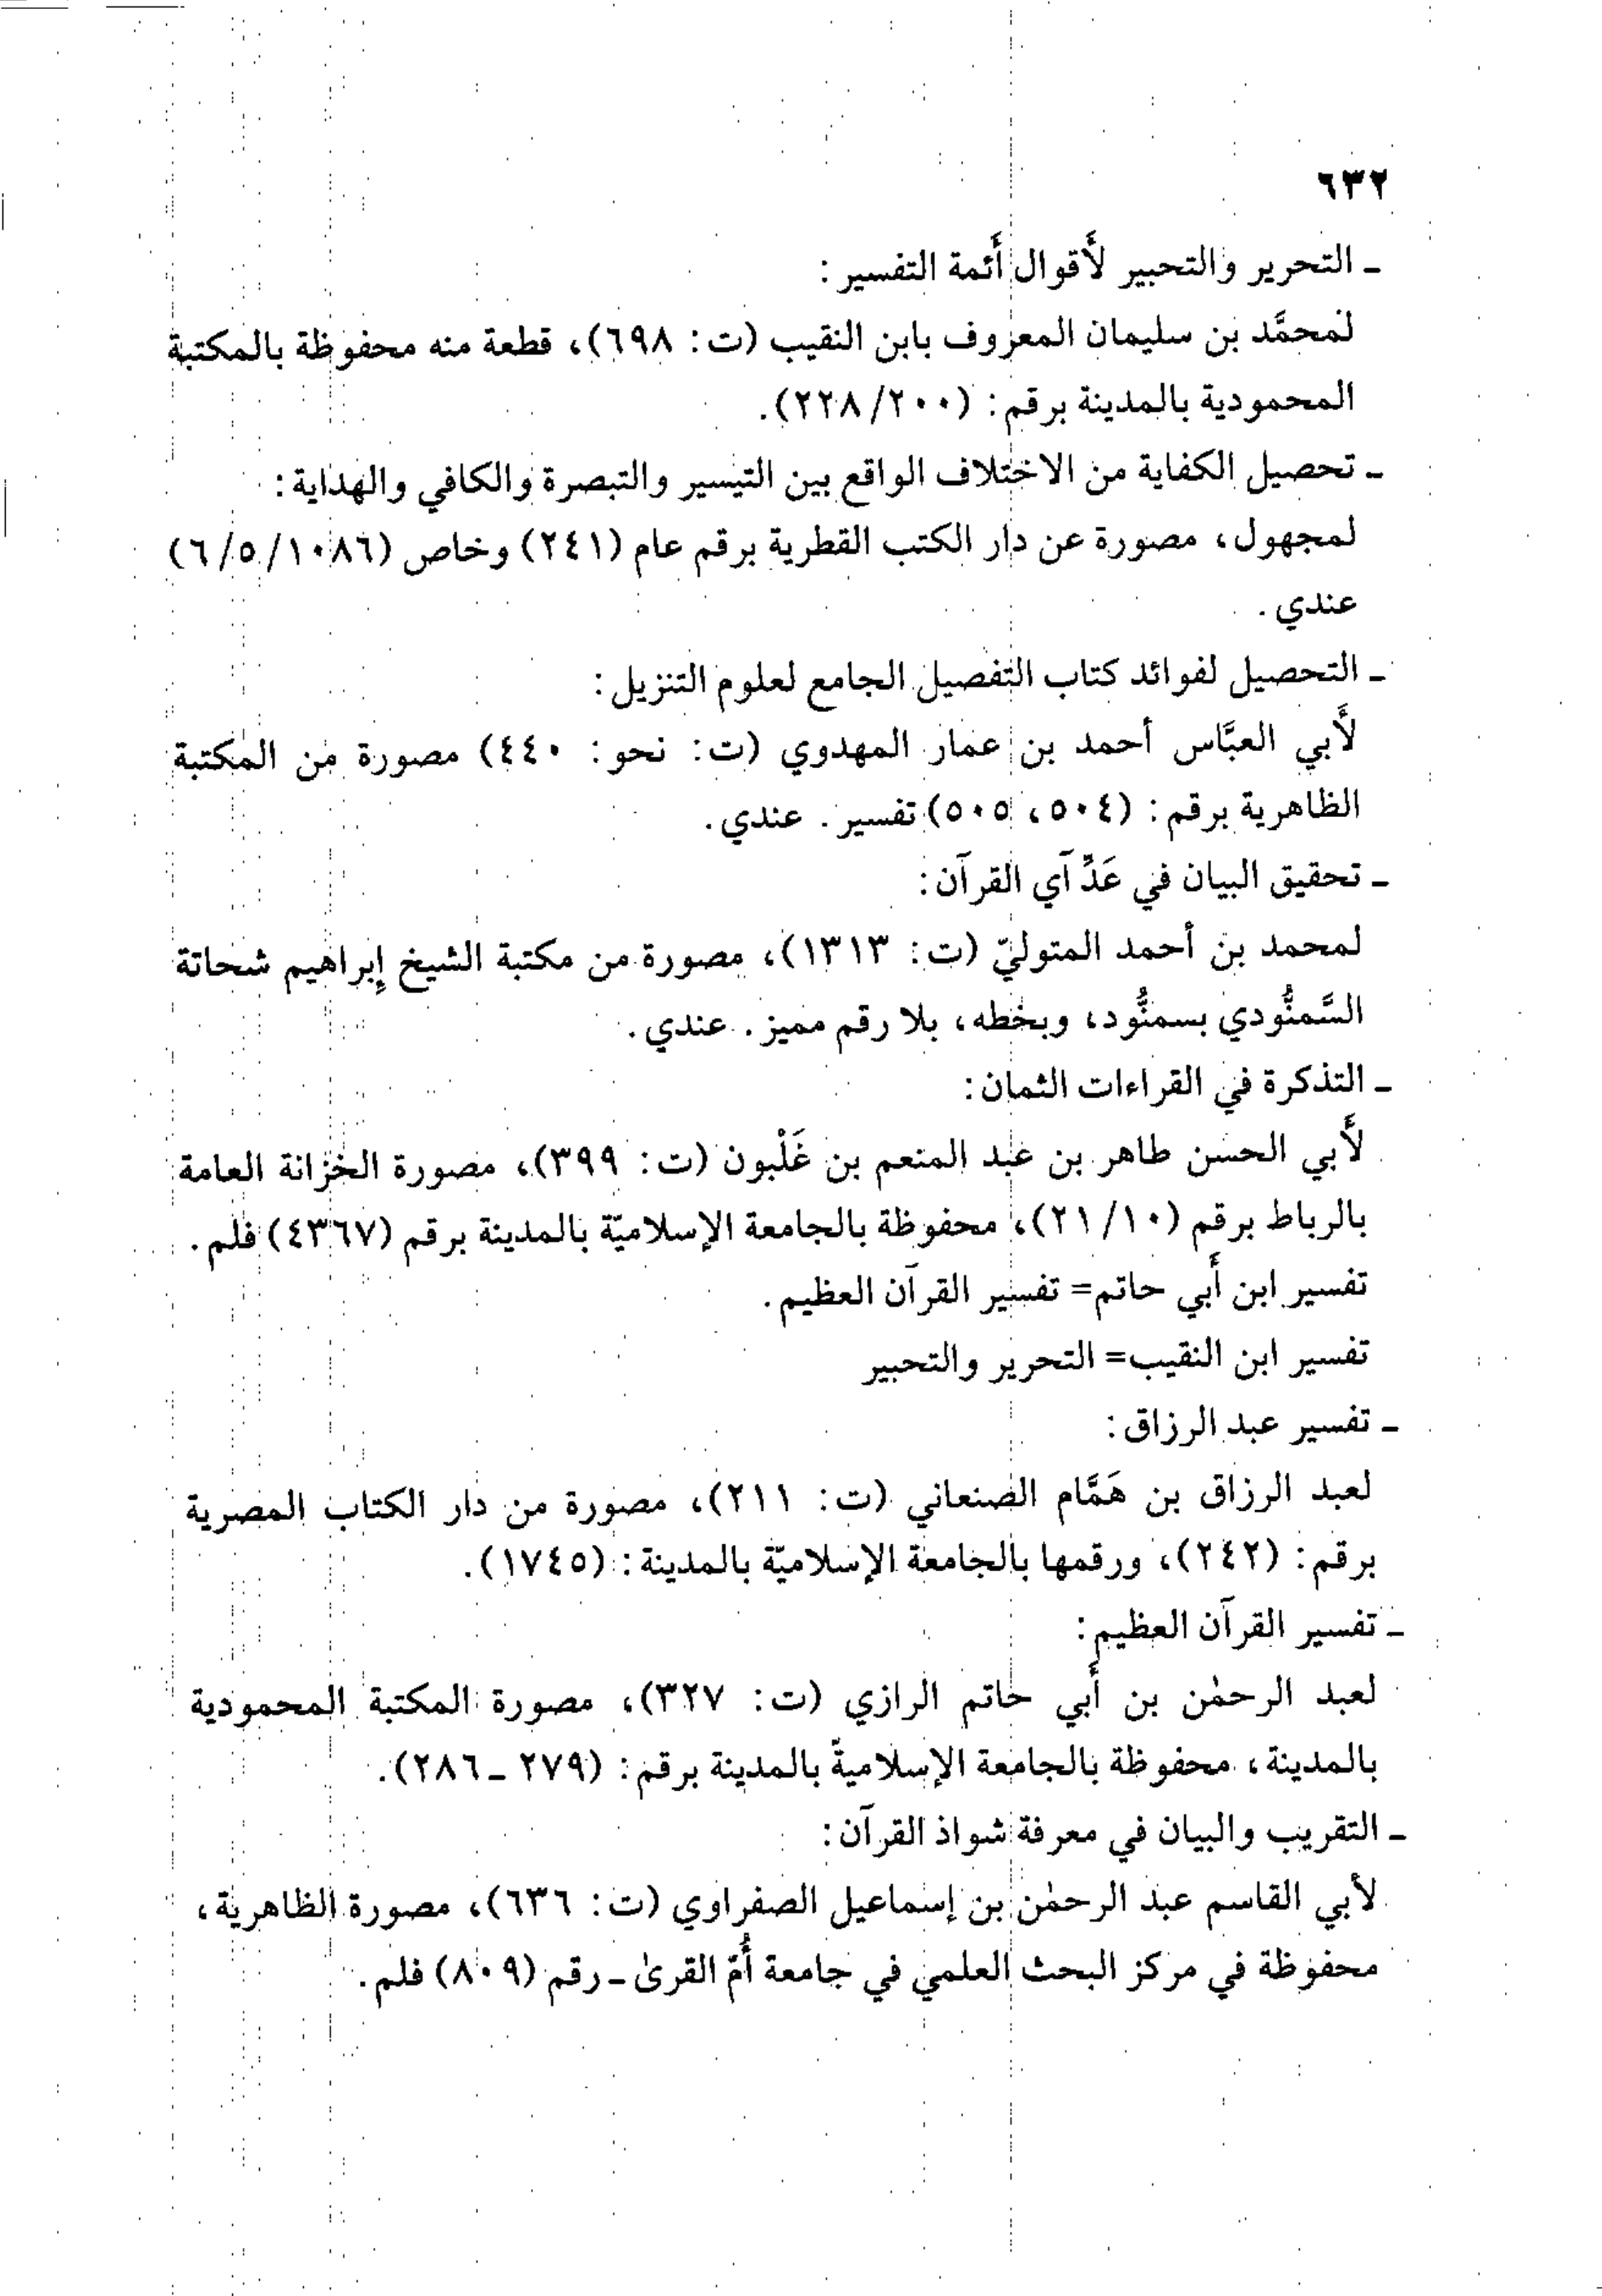 ٦٣٢
ـ التحرير والتحبير لأَقوال أَئمة التفسير:
لمحمَّد بن سليمان المعروف بابن النقيب (ت: ٦٩٨)، قطعة منه محفوظة بالمكتبة
المحمودية بالمدينة برقم: (٢٢٨/٢٠٠).
ـ تحصيل الكفاية من الاختلاف الواقع بين التيسير والتبصرة والكافي والهداية:
لمجهول، مصورة عن دار الكتب القطرية برقم عام (٢٤١) وخاص (٦/٥/١٠٨٦)
عندي.
ـ التحصيل لفوائد كتاب التفصيل الجامع لعلوم التنزيل:
لأَبي العبَّاس أحمد بن عمار المهدوي (ت: نحو: ٤٤٠) مصورة من المكتبة
الظاهرية برقم: (٥٠٤، ٥٠٥) تفسير. عندي.
ـ تحقيق البيان في عَدِّ آي القرآن:
لمحمد بن أحمد المتوليّ (ت: ١٣١٣)، مصورة من مكتبة الشيخ إِبراهيم شحاتة
السَّمنُّودي بسمنُّود، وبخطه، بلا رقم مميز. عندي.
ـ التذكرة في القراءات الثمان:
لأَبي الحسن طاهر بن عبد المنعم بن غَلْبون (ت: ٣٩٩)، مصورة الخزانة العامة
بالرباط برقم (٢١/١٠)، محفوظة بالجامعة الإسلاميّة بالمدينة برقم (٤٣٦٧) فلم.
تفسير ابن أَبي حاتم= تفسير القرآن العظيم.
تفسير ابن النقيب= التحرير والتحبير
ـ تفسير عبد الرزاق:
لعبد الرزاق بن هَمَّام الصنعاني (ت: ٢١١)، مصورة من دار الكتاب المصرية
برقم: (٢٤٢)، ورقمها بالجامعة الإسلاميّة بالمدينة: (١٧٤٥).
ـ تفسير القرآن العظيم:
لعبد الرحمٰن بن أَبي حاتم الرازي (ت: ٣٢٧)، مصورة المكتبة المحمودية
بالمدينة، محفوظة بالجامعة الإسلاميةّ بالمدينة برقم: (٢٧٩ ـ ٢٨٦).
ـ التقريب والبيان في معرفة شواذ القرآن:
لأبي القاسم عبد الرحمٰن بن إسماعيل الصفراوي (ت: ٦٣٦)، مصورة الظاهرية،
محفوظة في مركز البحث العلمي في جامعة أُمّ القرىٰ ـ رقم (٨٠٩) فلم.